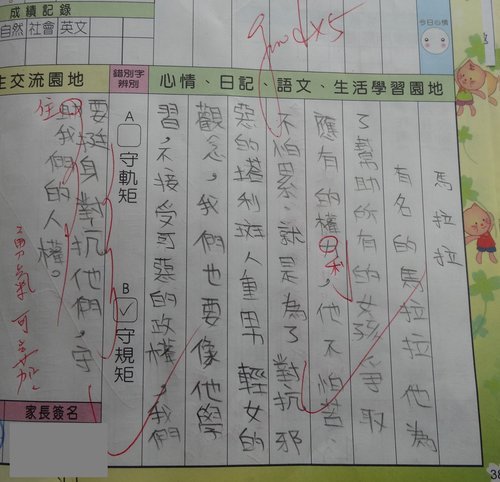 成績記錄
自然 社會 英文
今日心情
Good x5
心情、日記、語文、生活學習園地
錯別字辨別
生交流園地
馬拉拉
有名的馬拉拉他為
了幫助所有的女孩爭取
應有的權利,他不怕苦、
不怕累,就是為了對抗邪
惡的塔利班人重男輕女的
觀念,我們也要像他學
習,不接受可惡的政權,我們
A 守軌矩
B ✓ 守規矩
要挺身對抗他們,守
住我們的人權。
勇氣可嘉
家長簽名
38